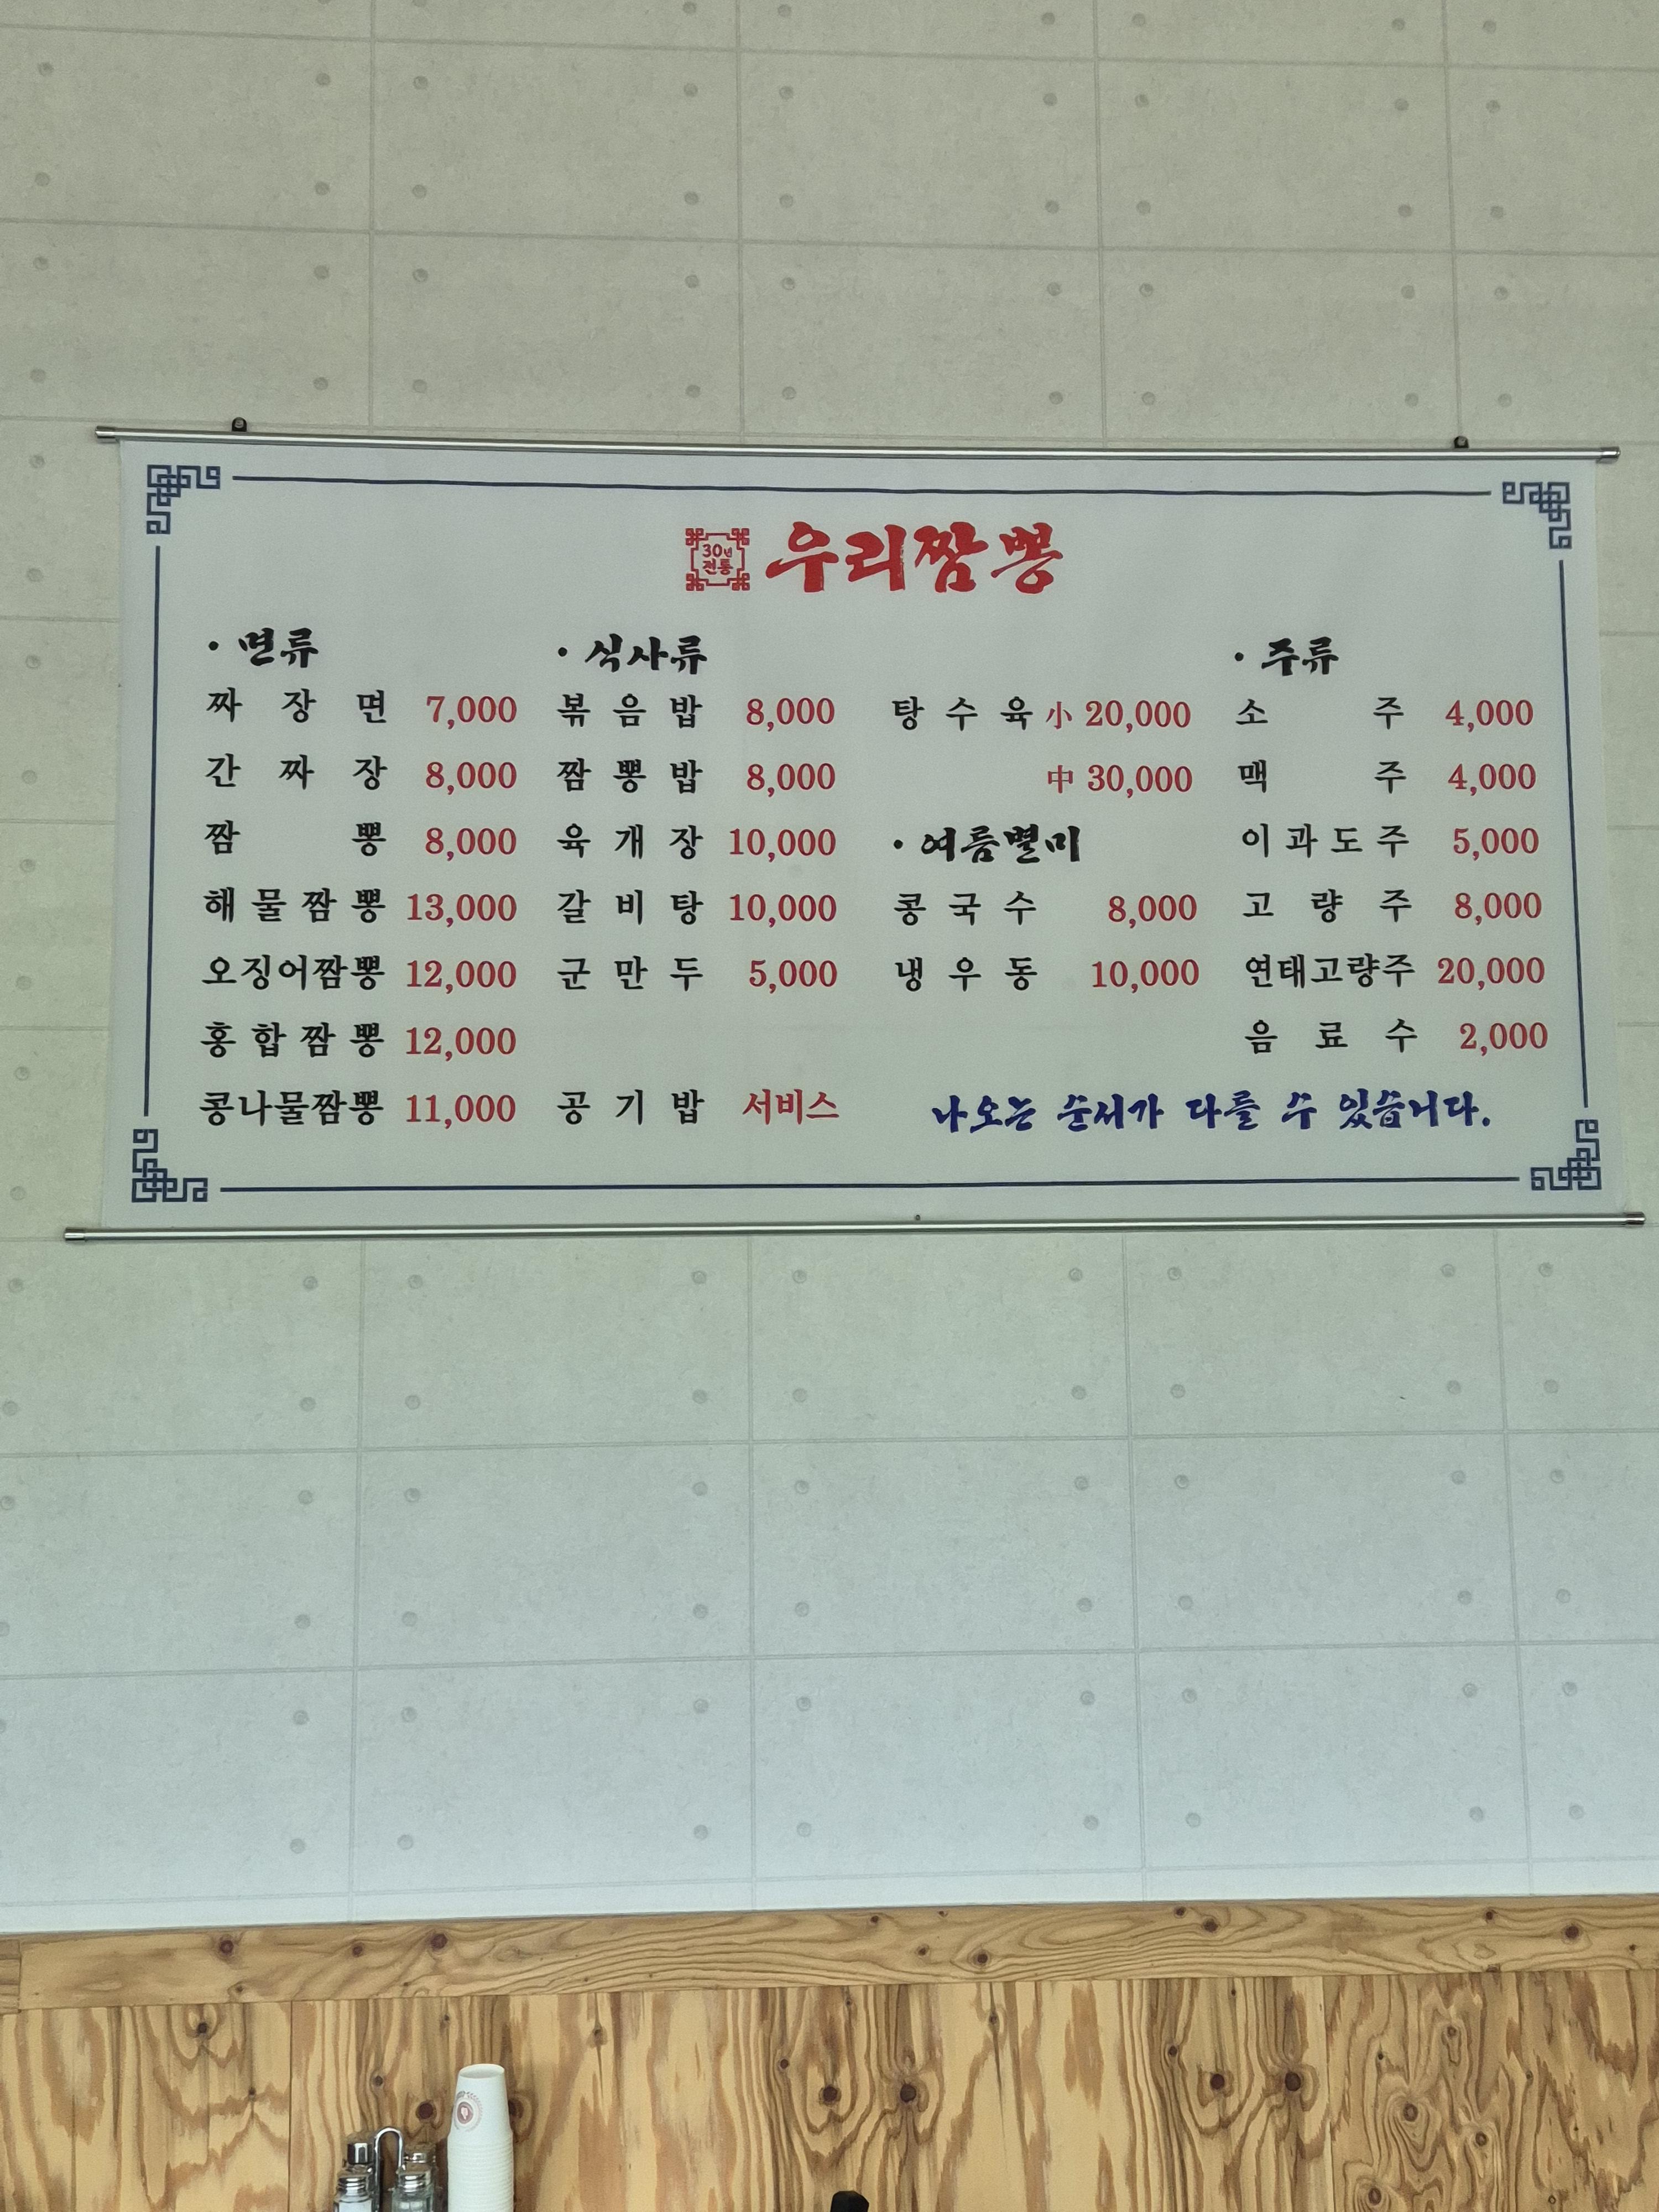 30년
전통
우리짬뽕
· 면류
짜장면 7,000
간짜장 8,000
짬뽕 8,000
해물짬뽕 13,000
오징어짬뽕 12,000
홍합짬뽕 12,000
콩나물짬뽕 11,000
· 식사류
볶음밥 8,000
짬뽕밥 8,000
육개장 10,000
갈비탕 10,000
군만두 5,000
공기밥 서비스
탕수육 小 20,000
中 30,000
· 여름별미
콩국수 8,000
냉우동 10,000
· 주류
소주 4,000
맥주 4,000
이과도주 5,000
고량주 8,000
연태고량주 20,000
음료수 2,000
나오는 순서가 다를 수 있습니다.